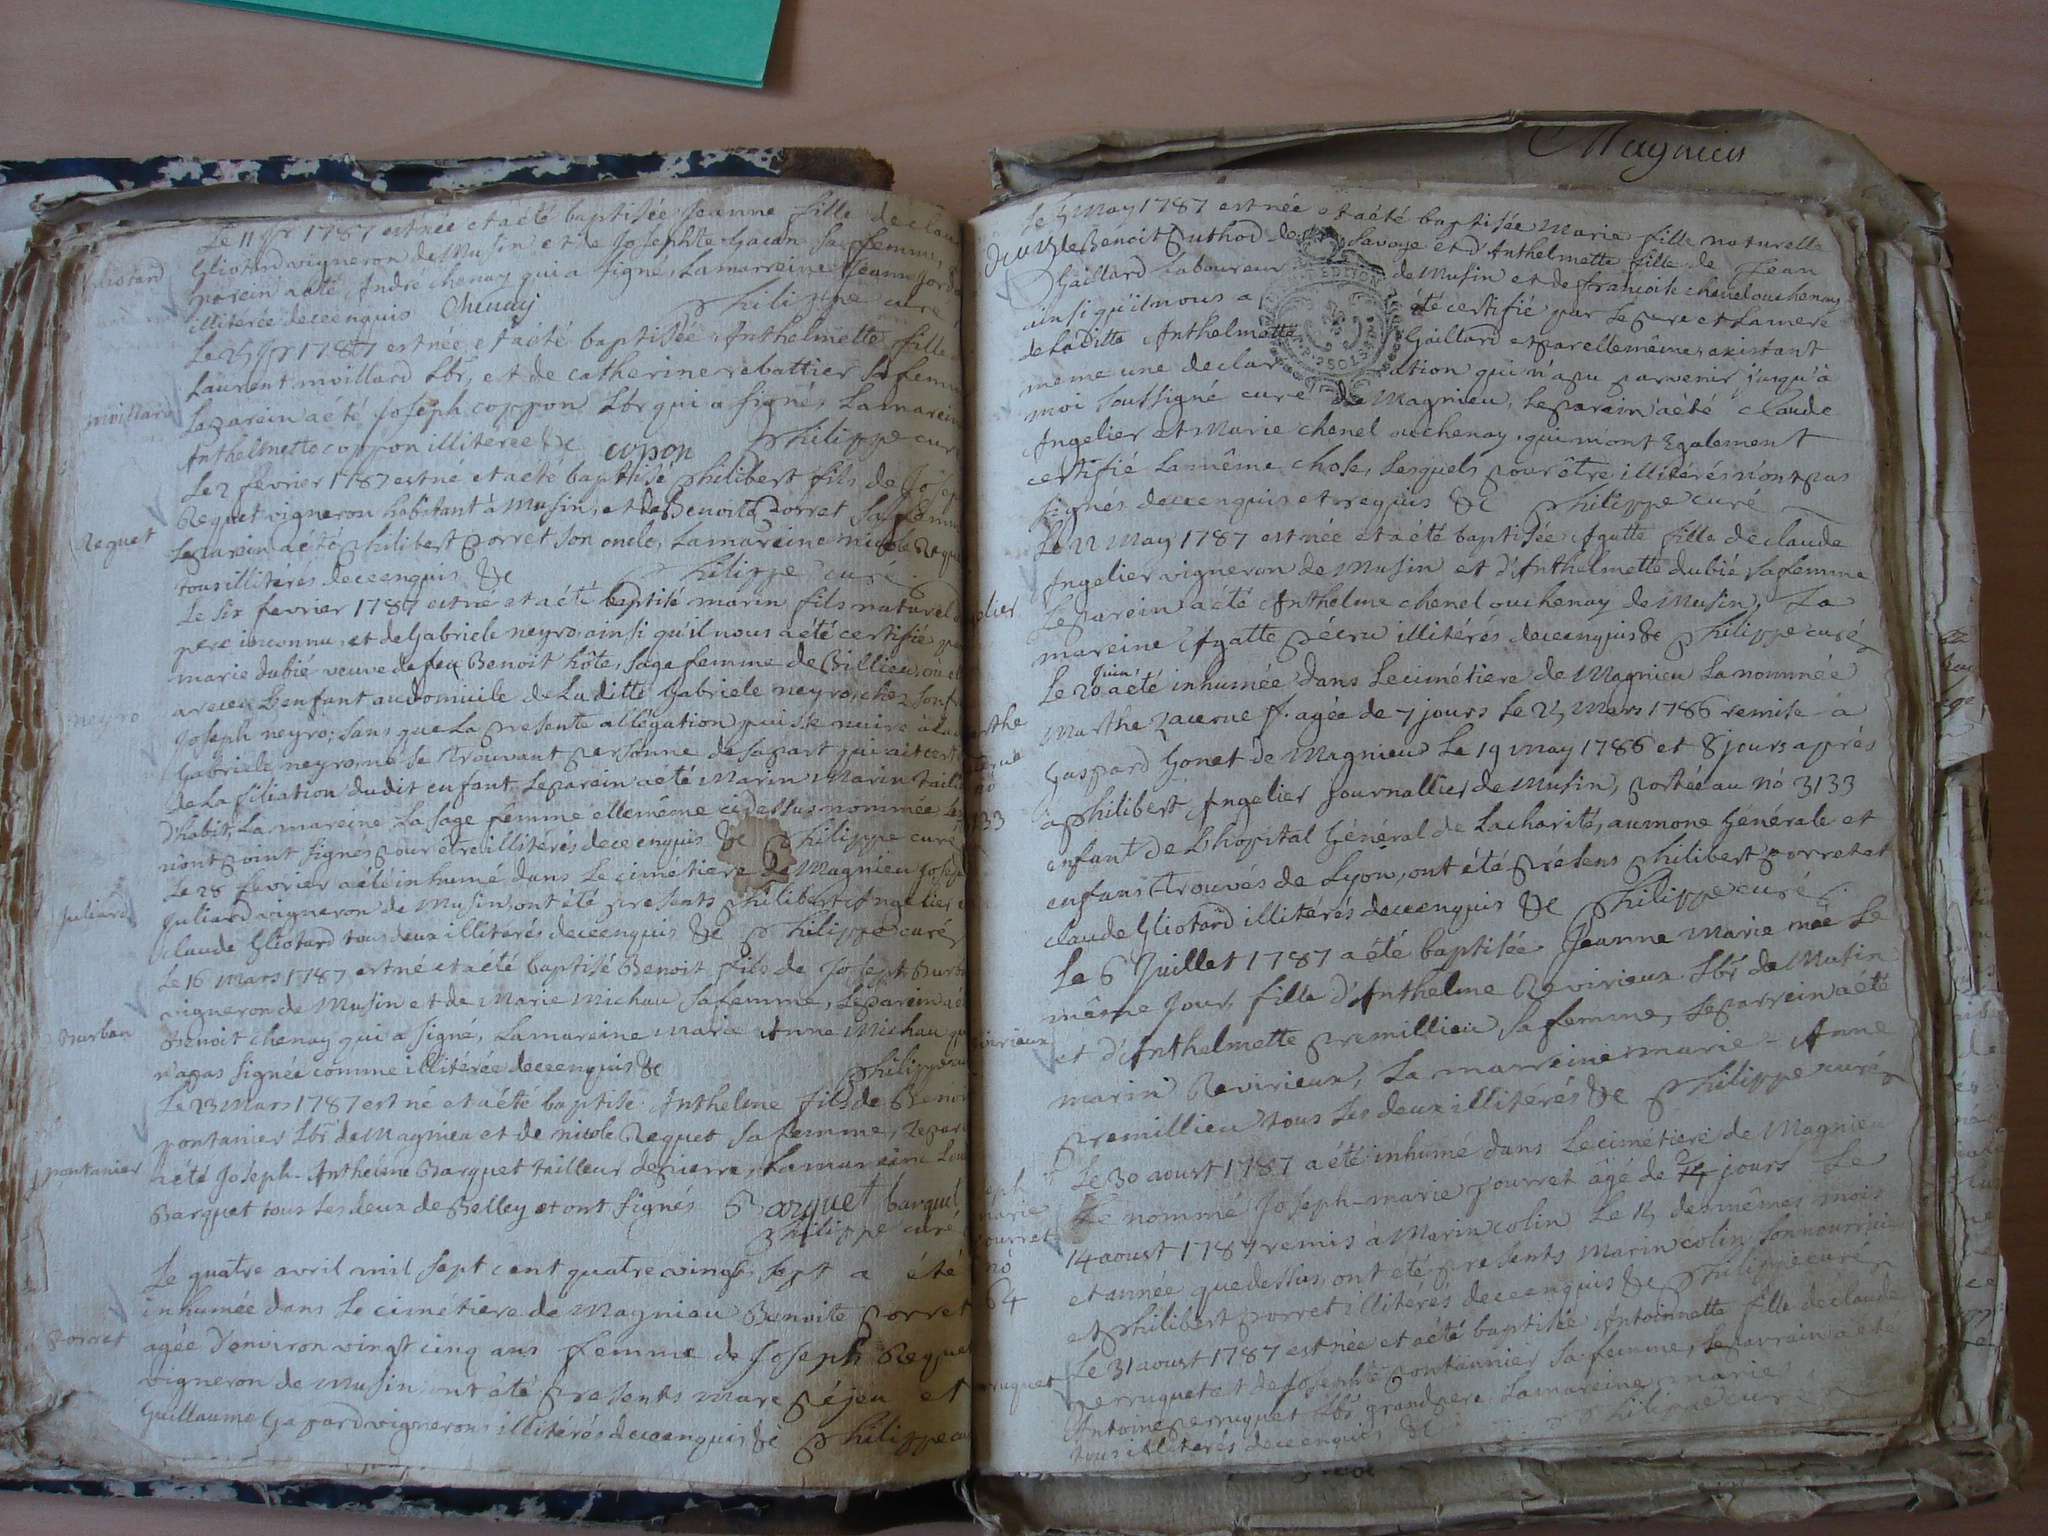 Le 11 jr 1787 est née et a été baptisée Jeanne fille de claude
Gliotard vigneron de Musin et de Josephte Gacon sa femme, le
parein a été André chenay qui a signé, La marreine Jeanne
illitérée de ce enquis Chenay Philippe curé
Le 25 jr 1787 est née et a été baptisée Anthelmette fille
Laurent mvillard Lbr, et de catherine rebattier sa femme
Le parein a été Joseph coppon Lbr qui a signé, La mareine
Anthelmette coppon illiterée &c copon Philippe curé
Le 2 fevrier 1787 est né et a été baptisé Philibert fils de Joseph
Reguet vigneron habitant à Musin, et de Benoite Porret sa femme
Le parein a été philibert porret son oncle, La mareine nicole Requet
tous illitérés de ce enquis &c Philippe curé
Le six fevrier 1787 est né et a été baptisé marin fils naturel
pere inconnu, et de Gabriele neyro ainsi qu'il nous a été certifié
marie dubié veuve de feu Benoit hôte, sage femme de Billieu,
a recu L'enfant au domicile de La ditte Gabriele neyro, chez son
Joseph neyro; sans que La presente allégation puisse nuire à
Gabriele neyro, ne se trouvant personne de sa part qui ait
de La filiation dudit enfant. Le parein a été Marin Marin
d'habit, La mareine La sage femme elle même ci dessus nommée
n'ont point signés pour etre illitérés de ce enquis &c Philippe curé
Le 28 fevrier a été inhumé dans Le cimétiere de Magnieu Joseph
Juliard vigneron de Musin, ont été presents Philibert Angelier
claude Gliotard tous deux illitérés de ce enquis &c Philippe curé
Le 16 mars 1787 est né et a été baptisé Benoit fils de Joseph Burban
vigneron de Musin et de Marie Michau sa femme, Le parein a été
Benoit chenay qui a signé, La mareine marie Anne Michau
n'a pas signée comme illitérée de ce enquis &c Philippe
Le 23 mars 1787 est né et a été baptisé Anthelme fils de Benoit
pontanier Lbr de Magnieu et de nicole Reguet sa femme, Le parein
a été Joseph-Anthelme Barquet tailleur de pierre, La mareine
Barquet tous Les deux de Belley et ont signés Barquet barquet
Philippe curé
Le quatre avril mil sept cent quatre vingt sept a été
inhumée dans Le cimétiere de Magnieu Benoite Porret
agée d'environ vingt cinq ans femme de Joseph Reguet
vigneron de Musin ont été presents Marc Péjeu et
Guillaume Gapard vignerons illitérés de ce enquis &c Philippe
Gliotard
mvillard
Reguet
neyro
Juliard
Burban
pontanier
Porret
Magnieu
Le 5 May 1787 est née et a été baptisée Marie fille naturelle
de Benoit Puthod de Savoye et d'Anthelmette fille de Jean
Gaillard Laboureur de Musin et de francoise chenel ou chenay
ainsi qu'il nous a été certifié par Le pere et La mere
de La ditte Anthelmette Gaillard et par elle même, existant
meme une declaration qui n'a pu parvenir jusqu'à
moi soussigné curé de Magnieu, Le parein a été claude
Angelier et Marie chenel ou chenay, qui m'ont Egalement
certifié La même chose, Lesquels pour être illitérés n'ont pas
signés de ce enquis et requis &c Philippe curé
Le 22 May 1787 est née et a été baptisée Agatte fille de claude
Angelier vigneron de Musin et d'Anthelmette dubié sa femme
Le parein a été Anthelme chenel ou chenay de Musin, La
mareine Agatte Pécru illitérés de ce enquis &c Philippe curé
Le 20 Juin a été inhumée dans Le cimétiere de Magnieu La nommée
Marthe f. agée de 7 jours Le 25 Mars 1786 remise à
Gaspard Gonet de Magnieu Le 19 may 1786 et 8 jours après
à Philibert Angelier journallier de Musin, portée au nó 3133
enfant de L'hopital Général de La charité, aumone Générale et
enfans trouvés de Lyon, ont été présens Philibert porret et
claude Gliotard illitérés de ce enquis &c Philippe curé
Le 6 Juillet 1787 a été baptisée Jeanne Marie née Le
même jour, fille d'Anthelme Revirieux Lbr de Musin
et d'Anthelmette premillieu sa femme, Le parrein a été
marin Revirieux, La marreine marie-Anne
premillieu tous Les deux illitérés &c Philippe curé
Le 30 aoust 1787 a été inhumé dans Le cimétiere de Magnieu
Le nommé Joseph-marie pourret âgé de jours Le
14 aoust 1787 remis à Marin colin Le 15 des mêmes mois
et année que dessus, ont été presents Marin colin son nourricier
et Philibert porret illitérés de ce enquis &c Philippe curé
Le 31 aoust 1787 est née et a été baptisée Antoinette fille de claude
perruquet et de Josephte pontannier sa femme, Le parrein a été
Antoine perruquet Lbr grand pere, La mareine marie
tous illiterés de ce enquis &c Philippe curé